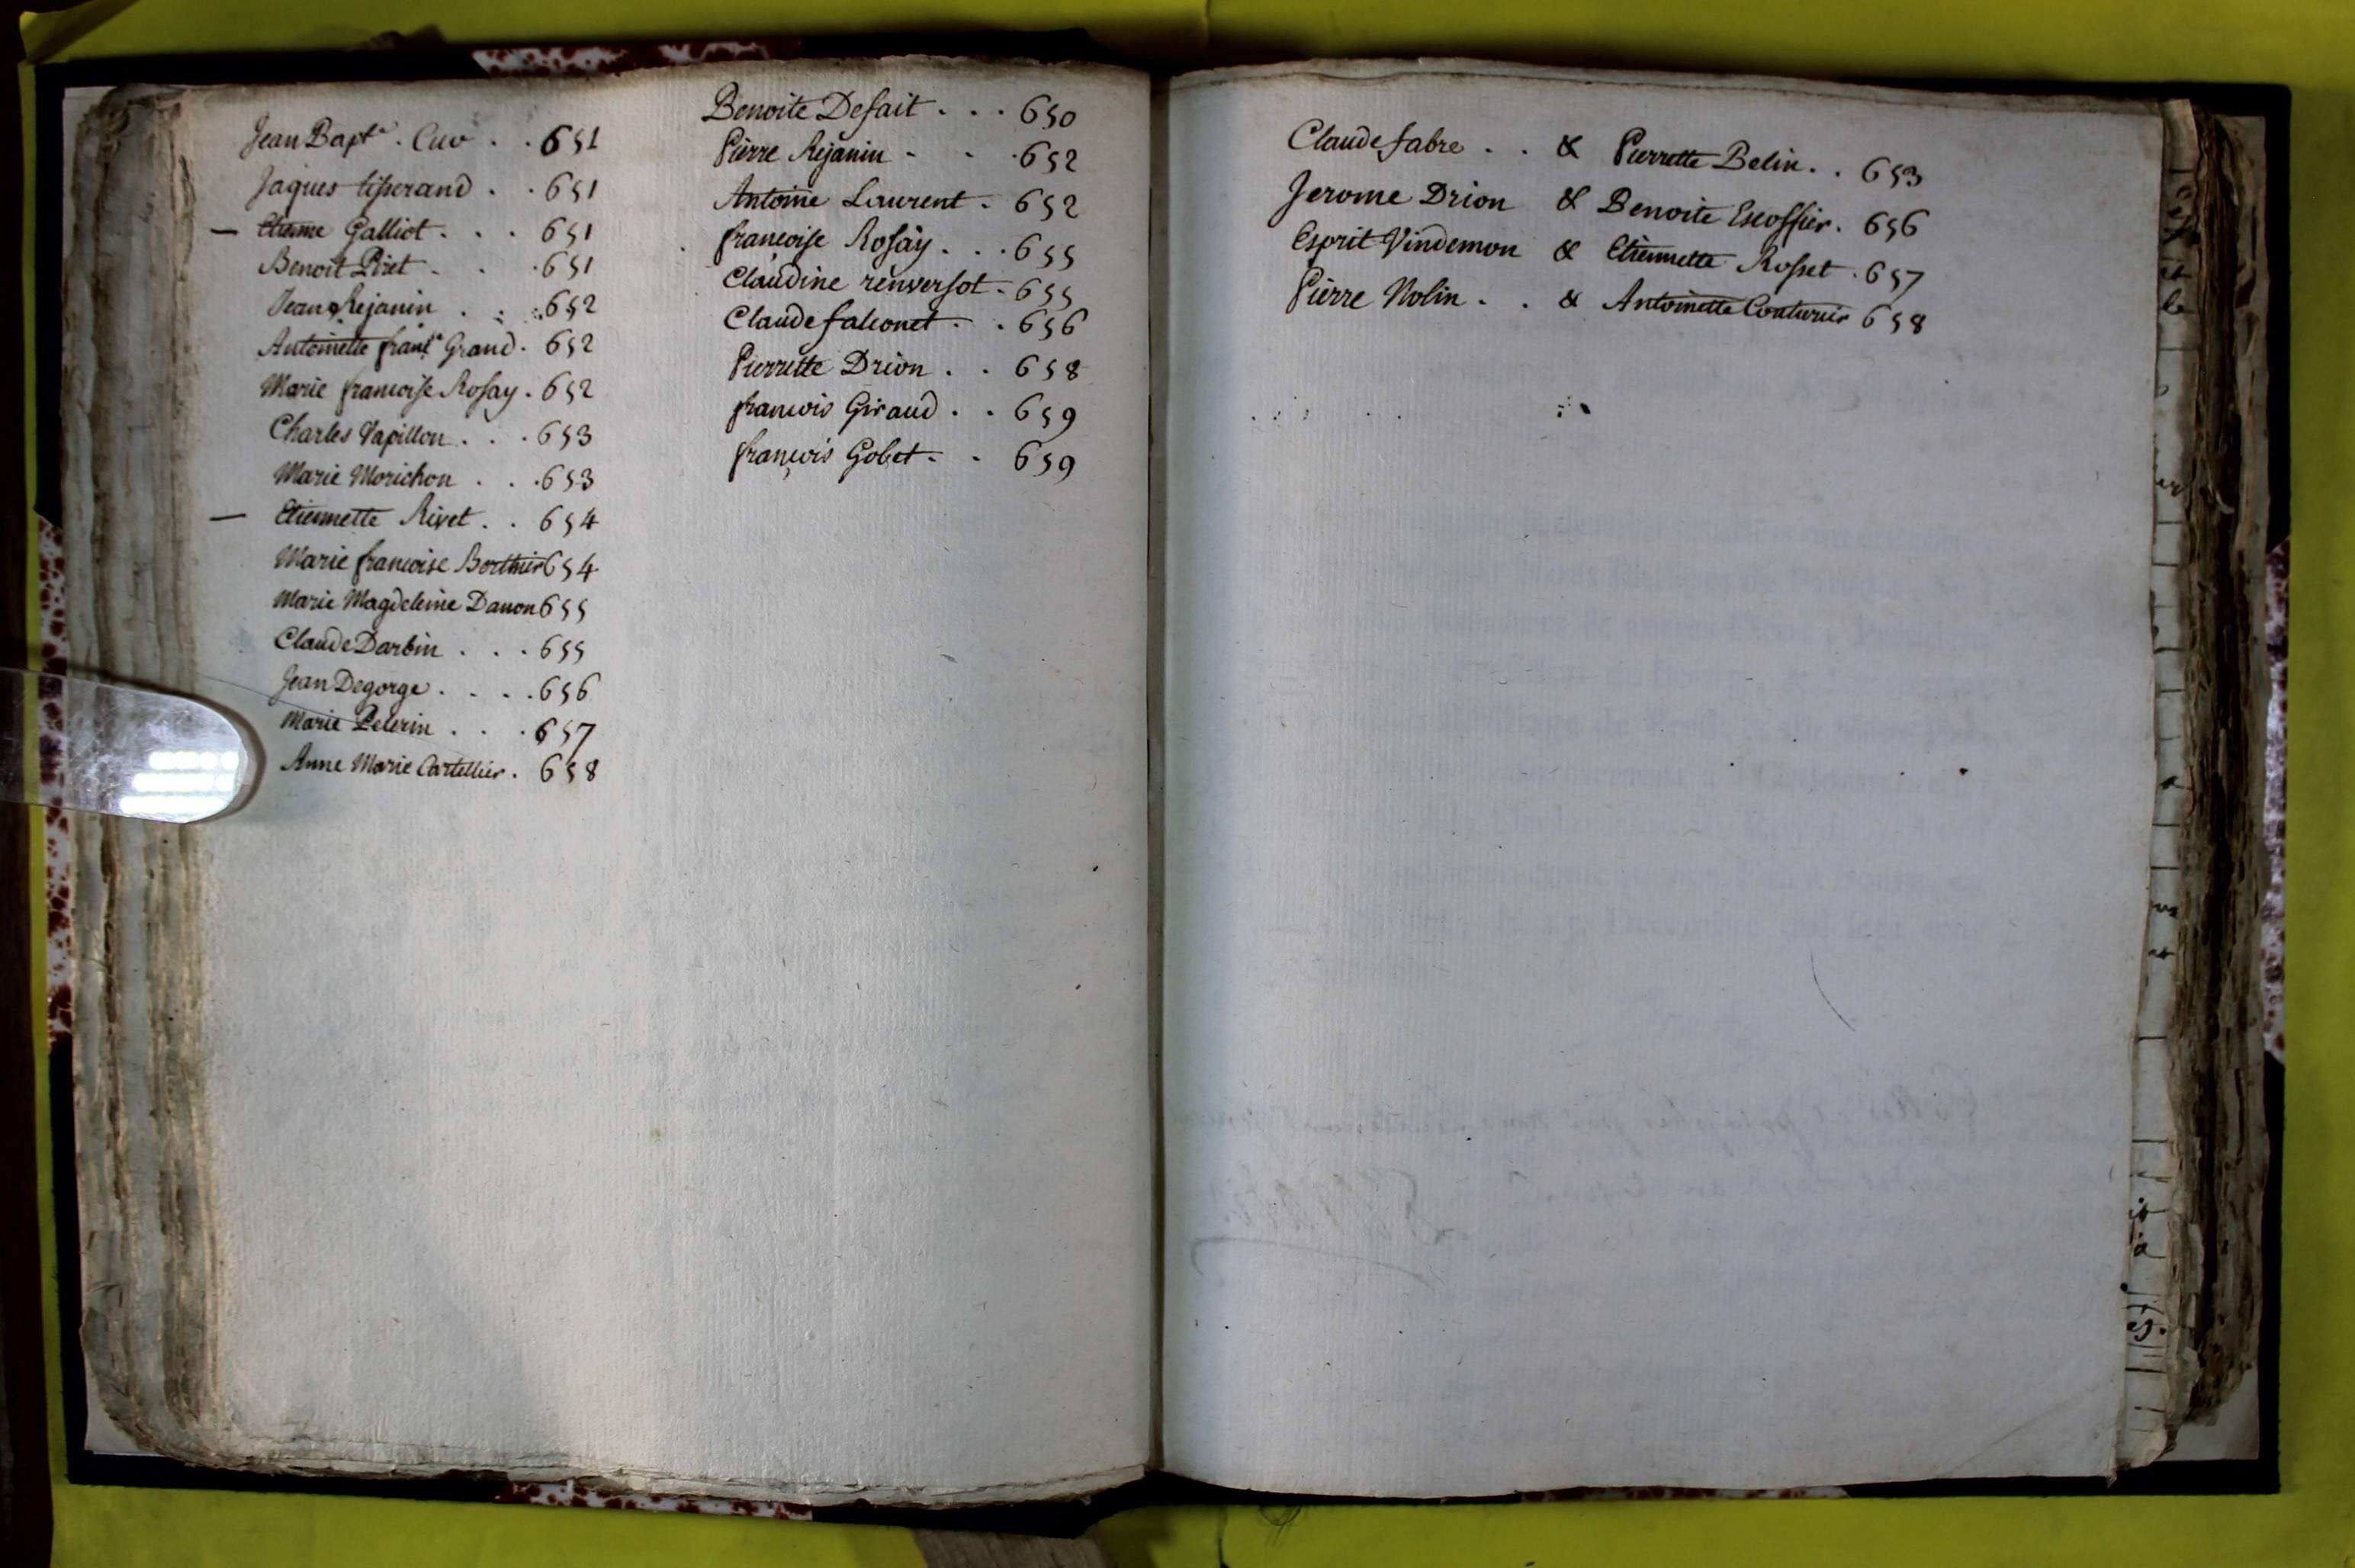 Jean Bapte. Cuo . . 651
Jaques tisserand . . 651
— Etienne Galliot . . . 651
Benoit Piret . . . 651
Jean Rejanin . . . 652
Antoinette franse Grand . 652
Marie francoise Rosay . 652
Charles Papillon . . . 653
Marie Morichon . . . 653
— Etiennette Rivet . . 654
Marie francoise Berthier 654
Marie Magdeleine Danon 655
Claude Darbin . . . 655
Jean Degorge . . . . 656
Marie Pelerin . . . 657
Anne Marie Cartellier . 658
Benoite Defait . . . 650
Pierre Rejanin - - . 652
Antoine Laurent . 652
françoise Rosay . . . 655
Claudine renversot . 655
Claude falconet . . 656
Pierrette Drion . . 658
francois Giraud . . 659
françois Gobet . . 659
Claude fabre . . & Pierrette Belin . . 653
Jerome Drion & Benoite Escoffier . 656
Esprit Vindemon & Etiennette Rosset . 657
Pierre Nolin . . & Antoinette Couturier 658